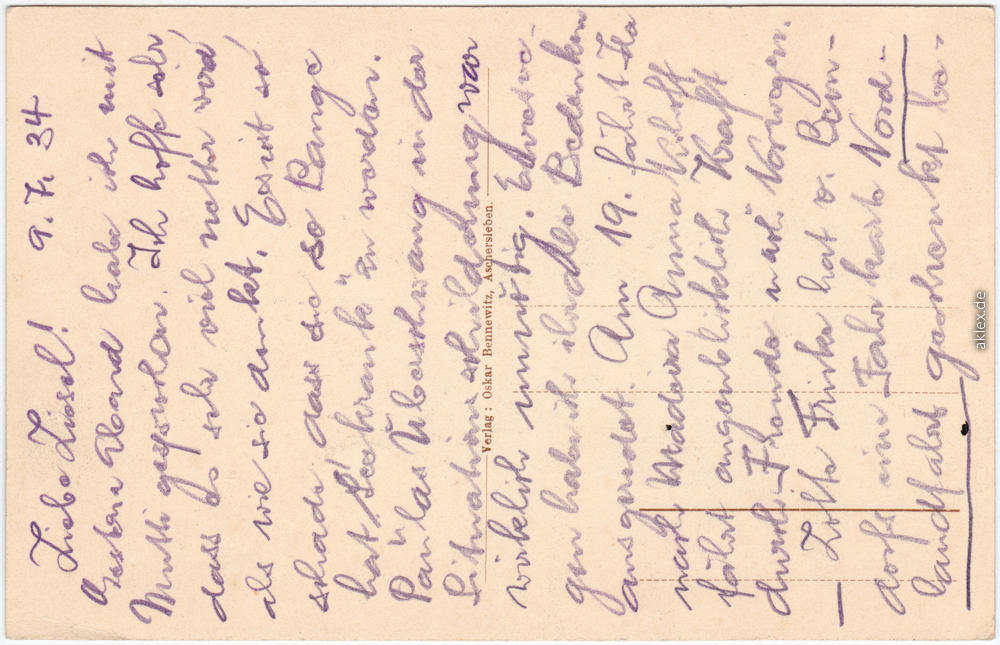 9. 7. 34
Liebe Liesel!
Gestern Abend habe ich mit
Mutti gesprochen. Ich hoffe sehr,
dass es sehr viel netter wird,
als wie sie denkt. Es ist so
schade dass sie so Bange
hat „Seekrank" zu werden.
Paula's Überschwang in der
Situationsschilderung war
wirklich unnötig. Ihretwe-
gen habe ich ihr die Bedenken
ausgeredet. Am 19. fährt Ila
nach Madeira Anna
fährt augenblicklich Kraft
durch Freude nach Norwegen.
— Lotte Finke hat v.
dorf eine Fahrkarte Nord-
landfahrt geschenkt be-
Verlag: Oskar Bennewitz, Aschersleben.
aklex.de